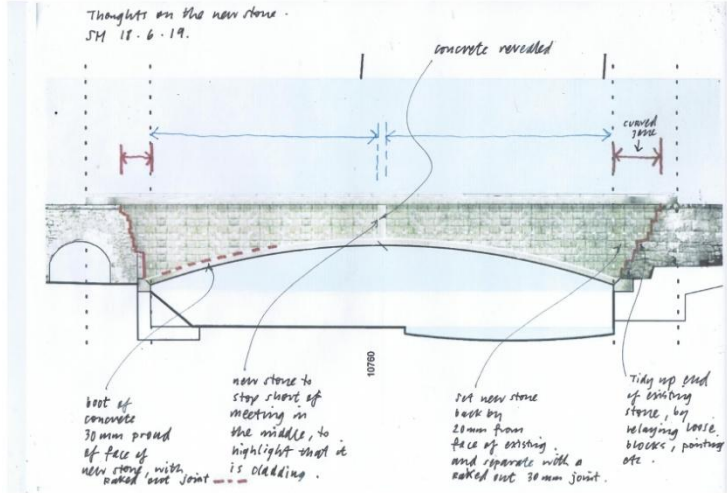 Thoughts on the new stone.
SM 18.6.19.
concrete revealed
curved
zone
10760
boot of
concrete
30 mm proud
of face of
new stone, with
raked out joint
new stone to
stop short of
meeting in
the middle, to
highlight that it
is cladding.
set new stone
back by
20mm from
face of existing
and separate with a
raked out 30mm joint.
Tidy up end
of existing
stone, by
relaying loose
blocks, pointing
etc.